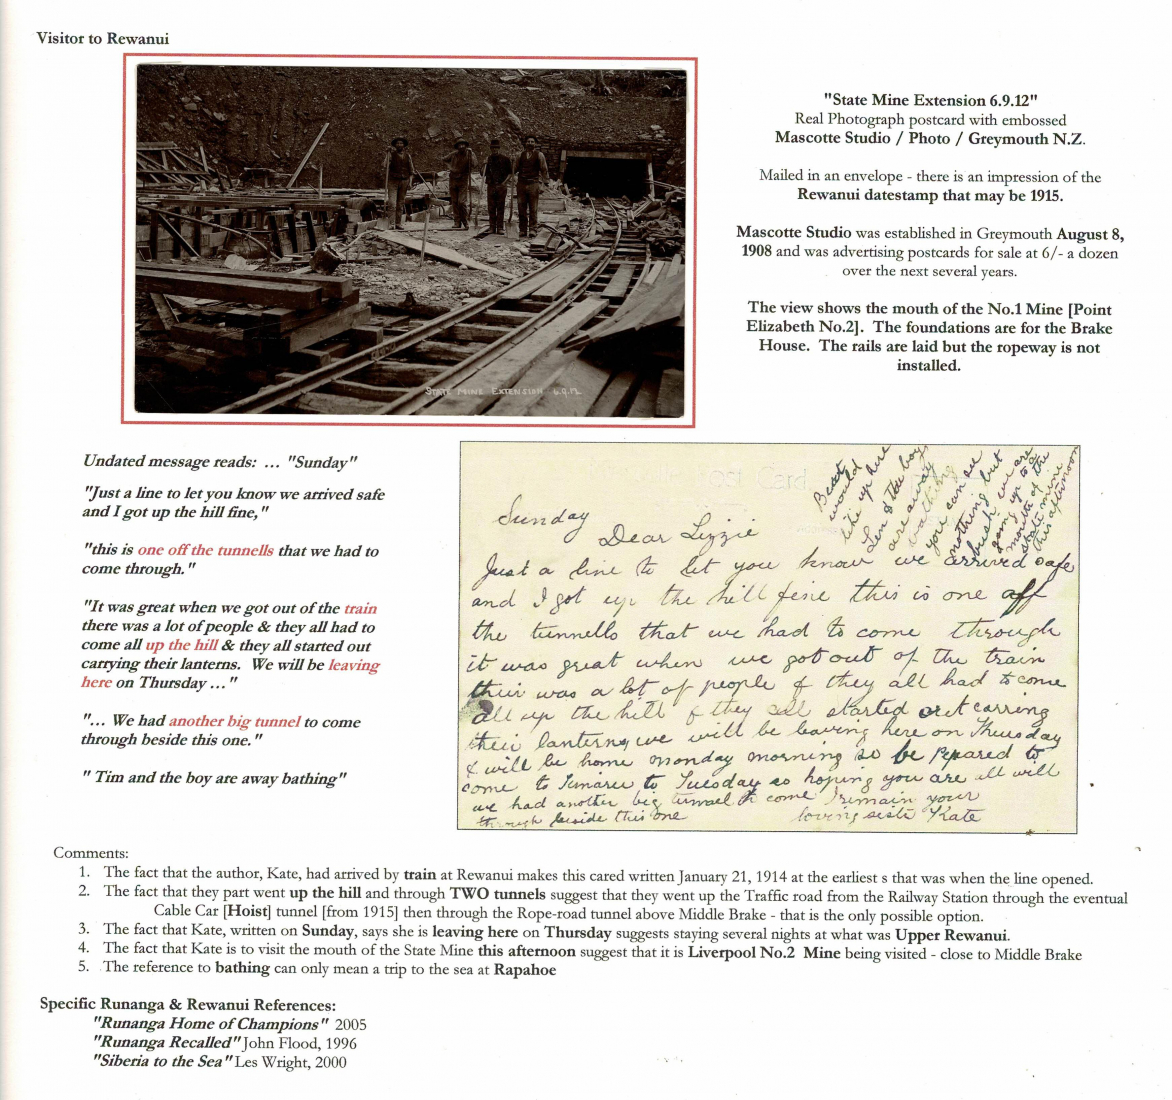 Visitor to Rewanui
"State Mine Extension 6.9.12"
Real Photograph postcard with embossed
Mascotte Studio / Photo / Greymouth N.Z.
Mailed in an envelope - there is an impression of the
Rewanui datestamp that may be 1915.
Mascotte Studio was established in Greymouth August 8,
1908 and was advertising postcards for sale at 6/- a dozen
over the next several years.
The view shows the mouth of the No.1 Mine [Point
Elizabeth No.2]. The foundations are for the Brake
House. The rails are laid but the ropeway is not
installed.
STATE MINE EXTENSION 6.9.12
Undated message reads: ... "Sunday"
"Just a line to let you know we arrived safe
and I got up the hill fine,"
"this is one off the tunnells that we had to
come through."
"It was great when we got out of the train
there was a lot of people & they all had to
come all up the hill & they all started out
carrying their lanterns. We will be leaving
here on Thursday ... "
"... We had another big tunnel to come
through beside this one."
" Tim and the boy are away bathing"
Post Card
Sunday
Dear Lizzie
Just a line to let you know we arrived safe
and I got up the hill fine this is one off
the tunnells that we had to come through
it was great when we got out of the train
their was a lot of people & they all had to come
all up the hill & they all started out carring
their lanterns we will be leaving here on Thursday
& will be home monday morning so be Prepared to
come to Timaru to Tuesday so hoping you are all will
we had another big tunnel to come I remain your
through beside this one loving sister Kate
would
like up here
Len & the boy
are away
bathing
you can see
nothing but
bush we are
going up to a
mouth of the
state mine
this afternoon
Comments:
1. The fact that the author, Kate, had arrived by train at Rewanui makes this cared written January 21, 1914 at the earliest s that was when the line opened.
2. The fact that they part went up the hill and through TWO tunnels suggest that they went up the Traffic road from the Railway Station through the eventual
Cable Car [Hoist] tunnel [from 1915] then through the Rope-road tunnel above Middle Brake - that is the only possible option.
3. The fact that Kate, written on Sunday, says she is leaving here on Thursday suggests staying several nights at what was Upper Rewanui.
4. The fact that Kate is to visit the mouth of the State Mine this afternoon suggest that it is Liverpool No.2 Mine being visited - close to Middle Brake
5. The reference to bathing can only mean a trip to the sea at Rapahoe
Specific Runanga & Rewanui References:
"Runanga Home of Champions" 2005
"Runanga Recalled" John Flood, 1996
"Siberia to the Sea" Les Wright, 2000